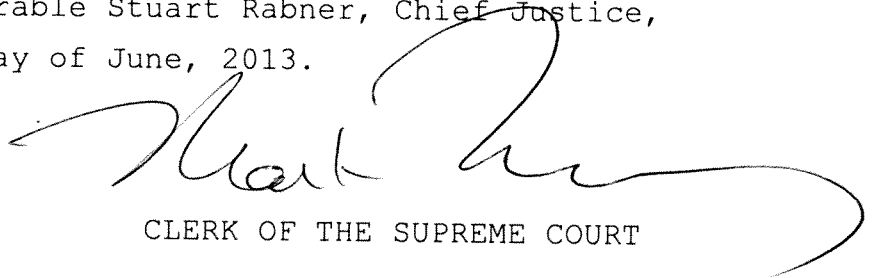 rable Stuart Rabner, Chief Justice,
ay of June, 2013.
Mark
CLERK OF THE SUPREME COURT